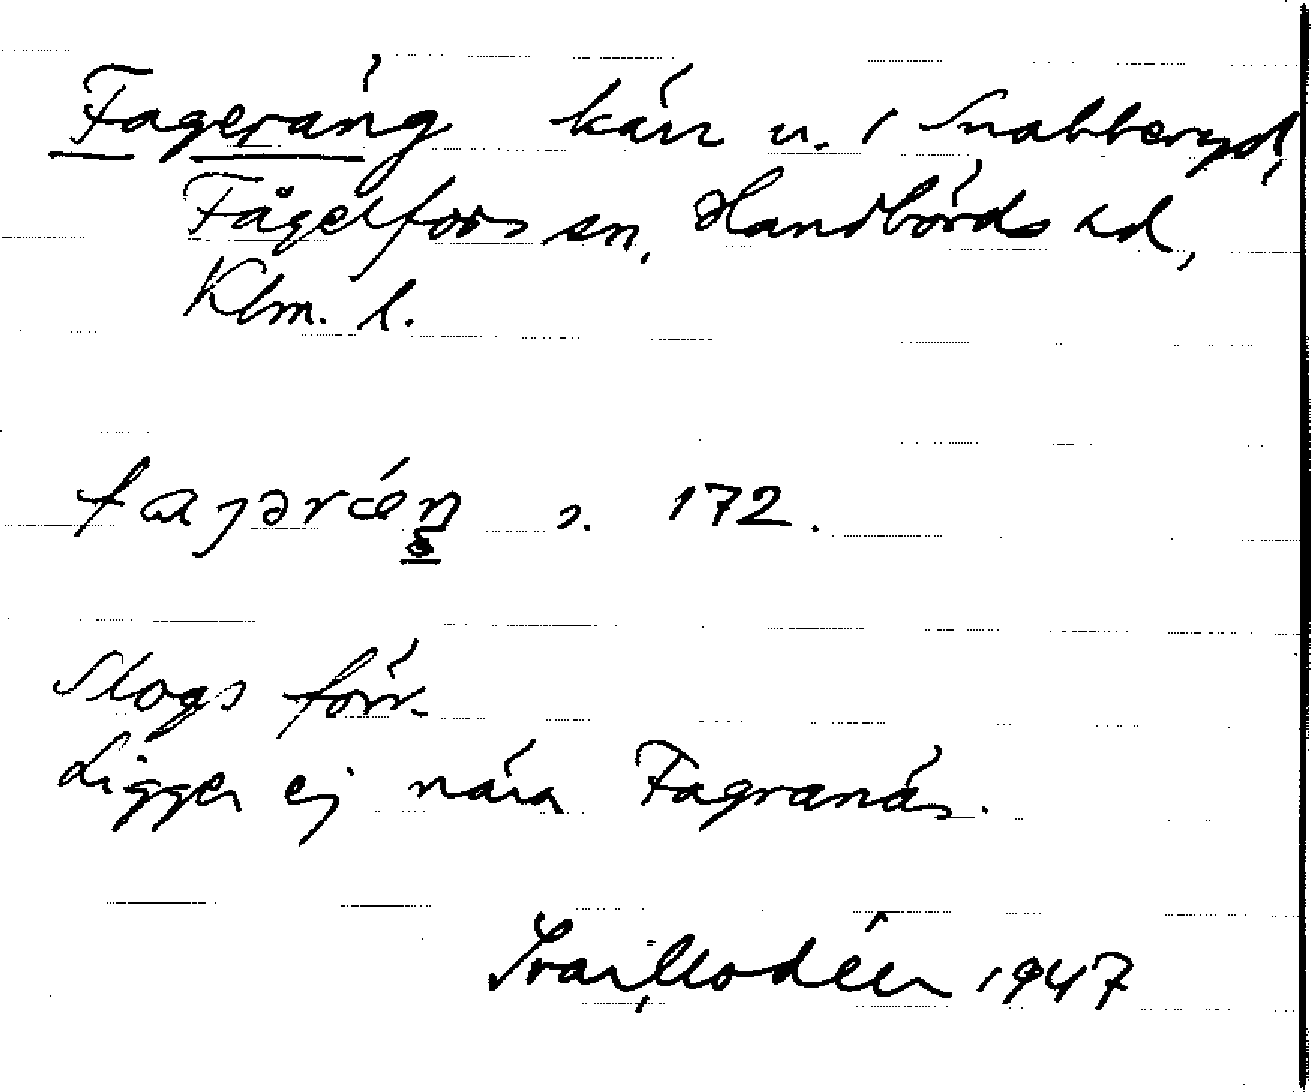 Fageräng kärr u. / Snabberyd,
Fågelfors sn, Handbörds hd,
Klm. l.
s. 172.
Skogs förr.
Ligger ej nära Fagranäs.
Ivar Modéer 1947